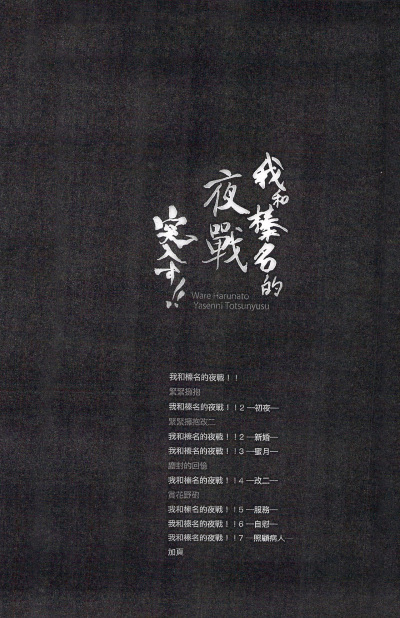 我和榛名的
夜戰
突入す!!
Ware Harunato
Yasenni Totsunyusu
我和榛名的夜戰！！
緊緊擁抱
我和榛名的夜戰！！2 ─初夜─
緊緊擁抱改二
我和榛名的夜戰！！2 ─新婚─
我和榛名的夜戰！！3 ─蜜月─
塵封的回憶
我和榛名的夜戰！！4 ─改二─
賞花野砲
我和榛名的夜戰！！5 ─服務─
我和榛名的夜戰！！6 ─自慰─
我和榛名的夜戰！！7 ─照顧病人─
加頁